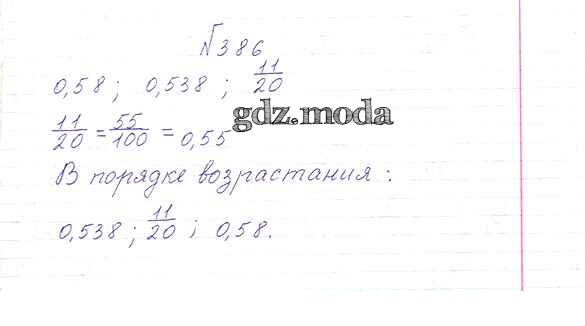 №386
0,58 ; 0,538 ; 11/20
11/20 = 55/100 = 0,55
gdz.moda
В порядке возрастания :
0,538 ; 11/20 ; 0,58.